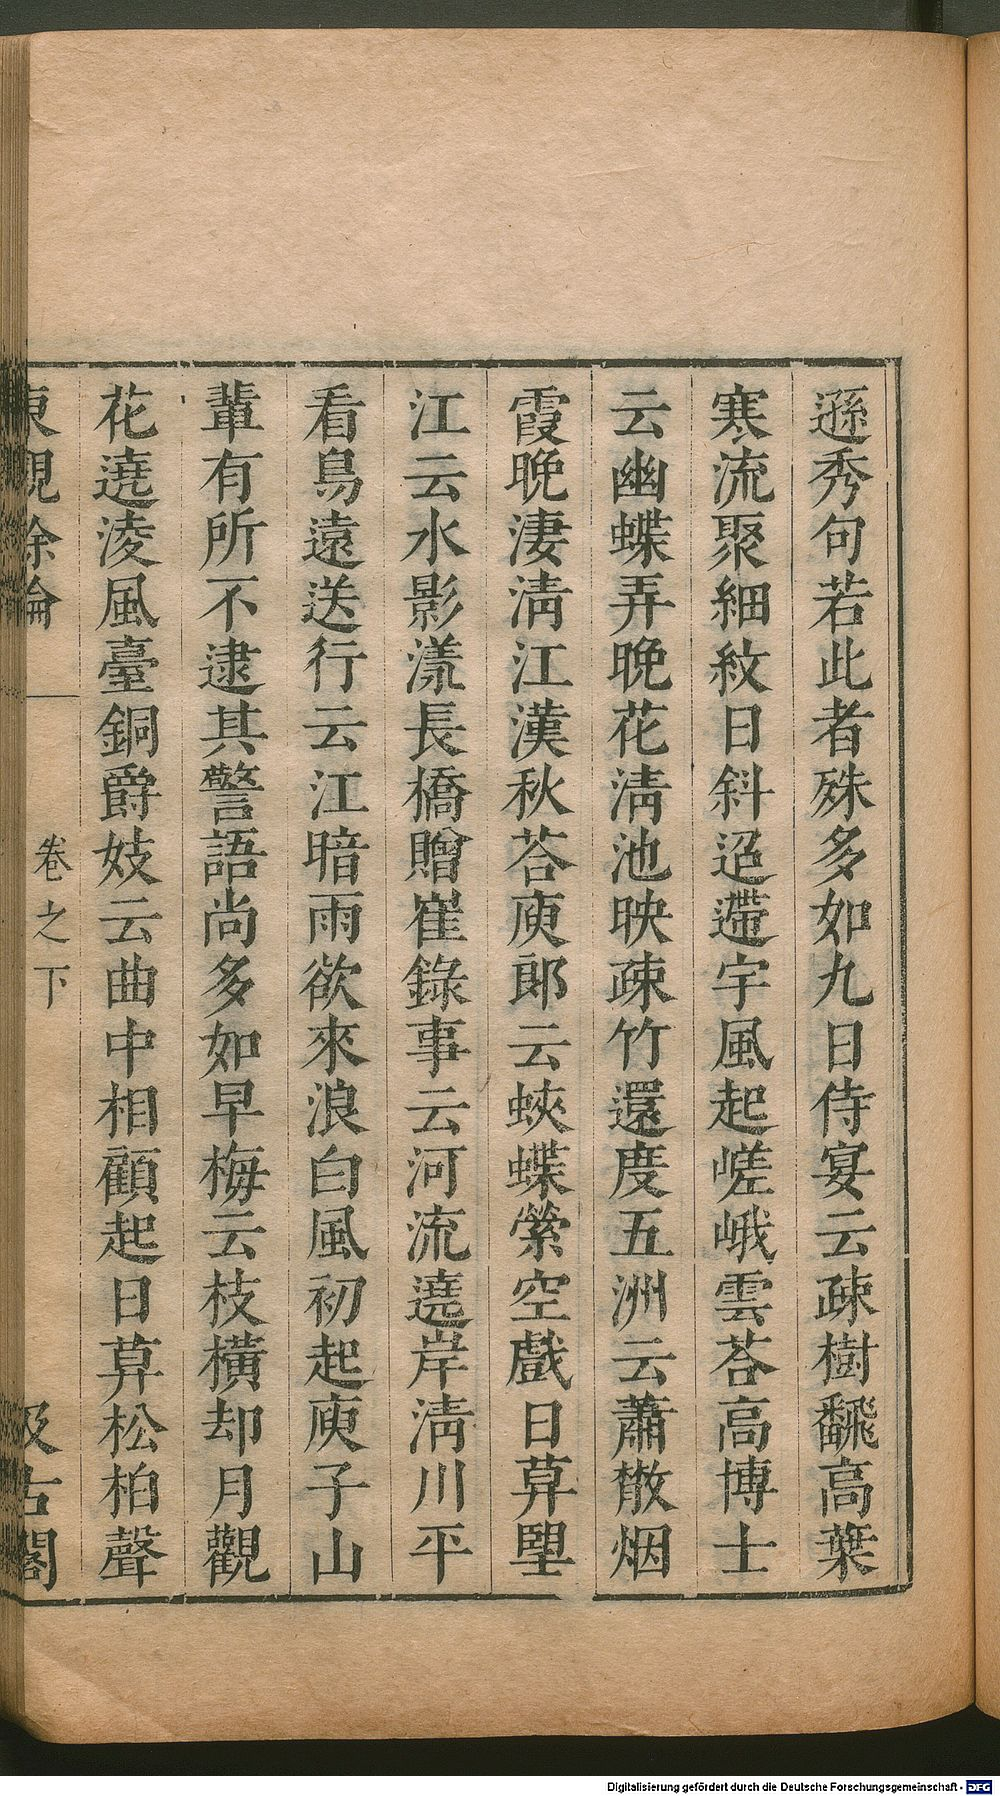 遜秀句若此者殊多如九日侍宴云疎樹飜高葉
寒流聚細紋日斜迢遰宇風起嵯峨雲荅高博士
云幽蝶弄晚花淸池映疎竹還度五洲云蕭散烟
霞晚淒淸江漢秋荅庾郎云蛺蝶縈空戲日暮望
江云水影漾長橋贈崔錄事云河流遶岸淸川平
看鳥遠送行云江暗雨欲來浪白風初起庾子山
輩有所不逮其警語尚多如早梅云枝橫却月觀
花遶淩風臺銅爵妓云曲中相顧起日暮松柏聲
東觀餘論 卷之下 汲古閣
Digitalisierung gefördert durch die Deutsche Forschungsgemeinschaft - DFG